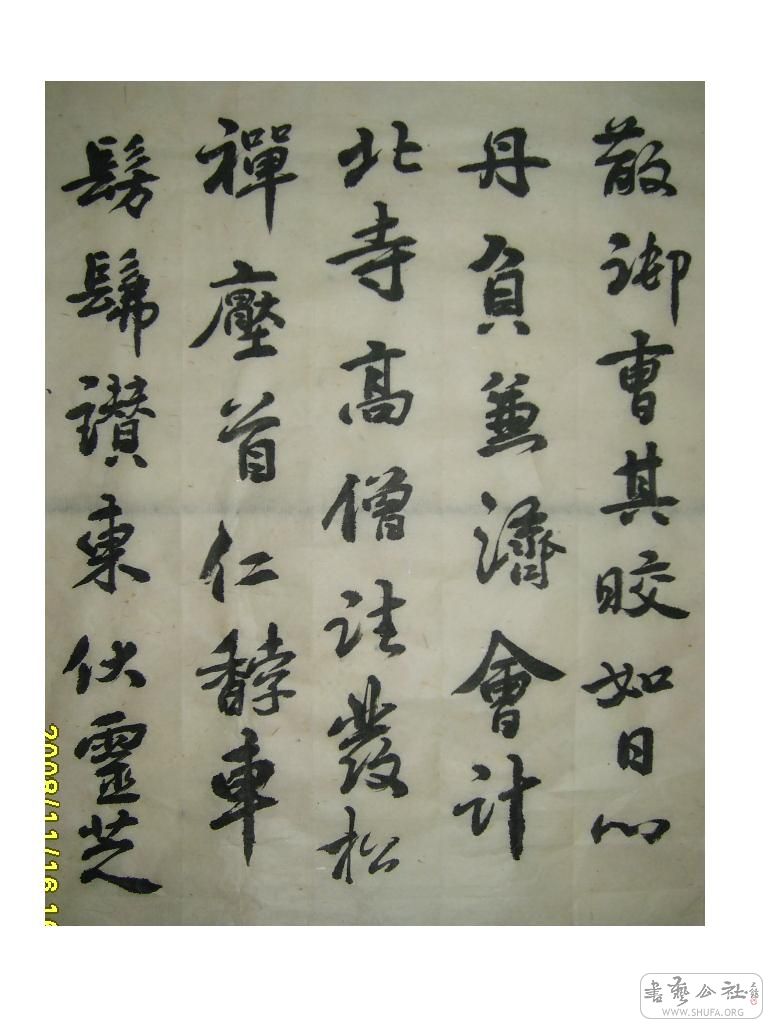 散御曹其皎如日心
丹負兼濟會計
北寺高僧註發松
禪壓首仁馞車
髣髴讃東伏靈芝
2008/11/16
書藝公社
WWW.SHUFA.ORG